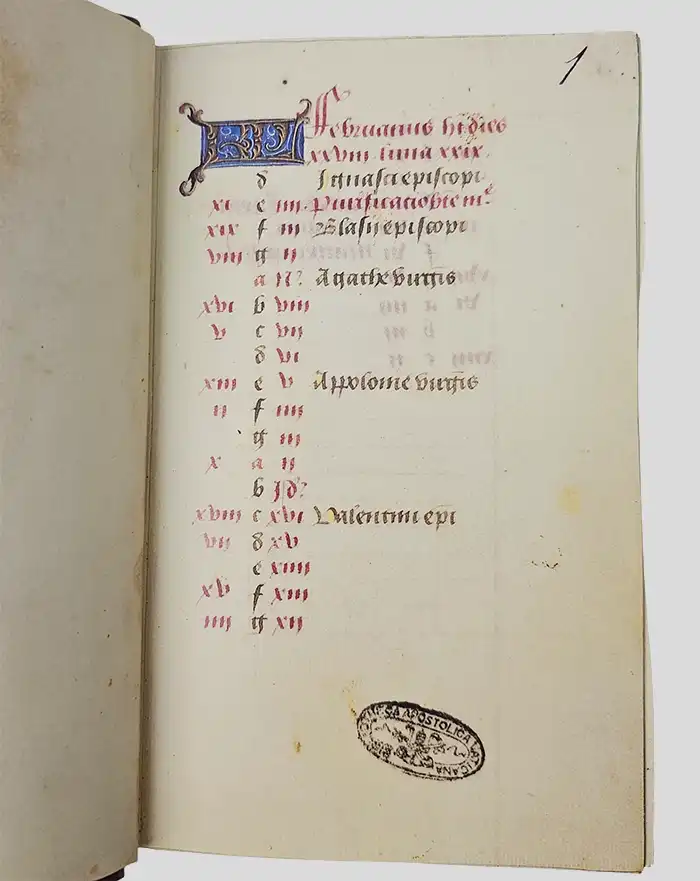 1
KL Februarius ht dies
xxviii luna xxix.
d Ignasii episcopi
xi e iiii Purificatio bte mᵉ
xix f iii Blasij episcopi
viii g ii
a nᵒ Agathe virgis
xvi b viii
v c vii
d vi
xiii e v Appolonie virgis
ii f iiii
g iii
x a ii
b Jdᵒ
xviii c xvi Valentini epi
vii d xv
e xiiii
xv f xiii
iiii g xii
BIBLIOTHECA APOSTOLICA VATICANA